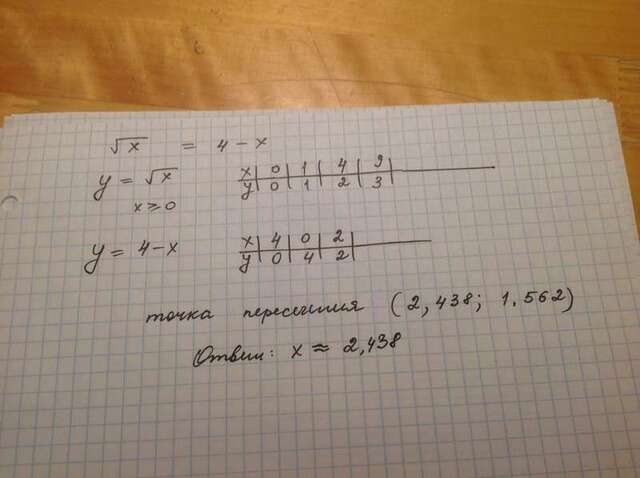 √x = 4 - x
y = √x
x ≥ 0
x | 0 | 1 | 4 | 9 |
y | 0 | 1 | 2 | 3 |
y = 4 - x
x | 4 | 0 | 2 |
y | 0 | 4 | 2 |
точка пересечения (2,438; 1.562)
Ответ: x ≈ 2,438